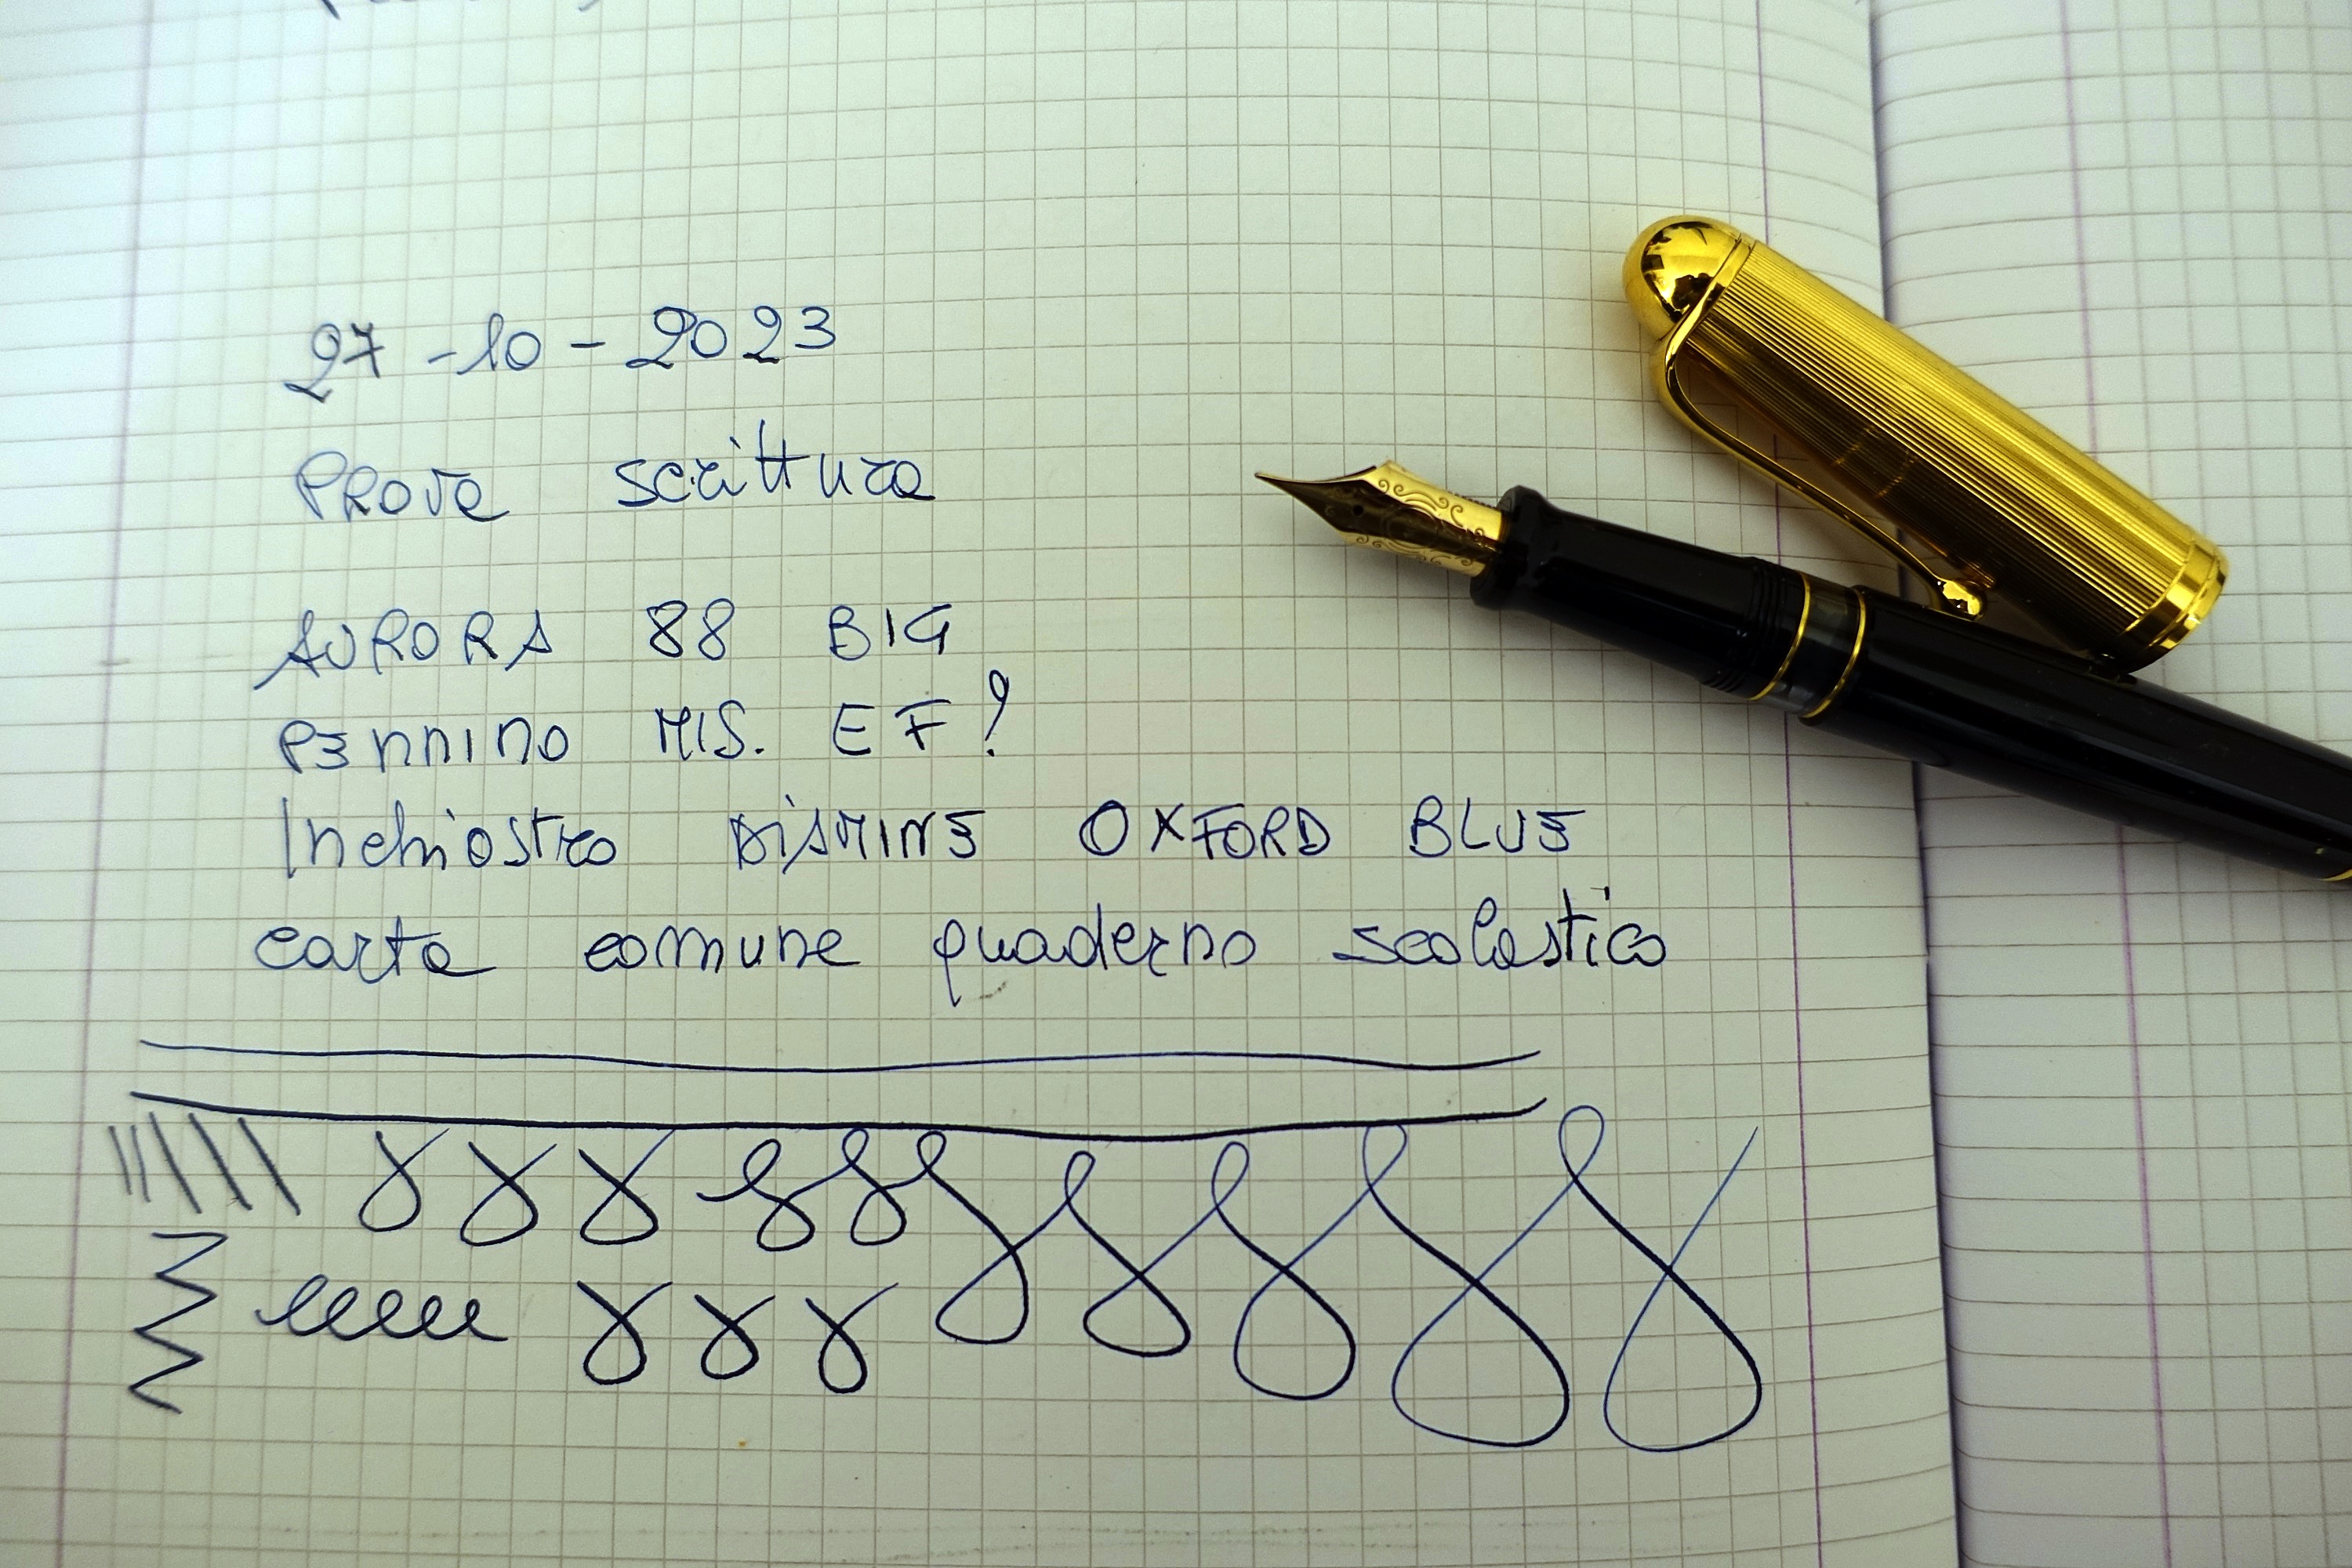 27-10-2023
Prova scrittura
AURORA 88 BIG
PENNINO MIS. EF?
Inchiostro DIAMINE OXFORD BLUE
carta comune quaderno scolastico